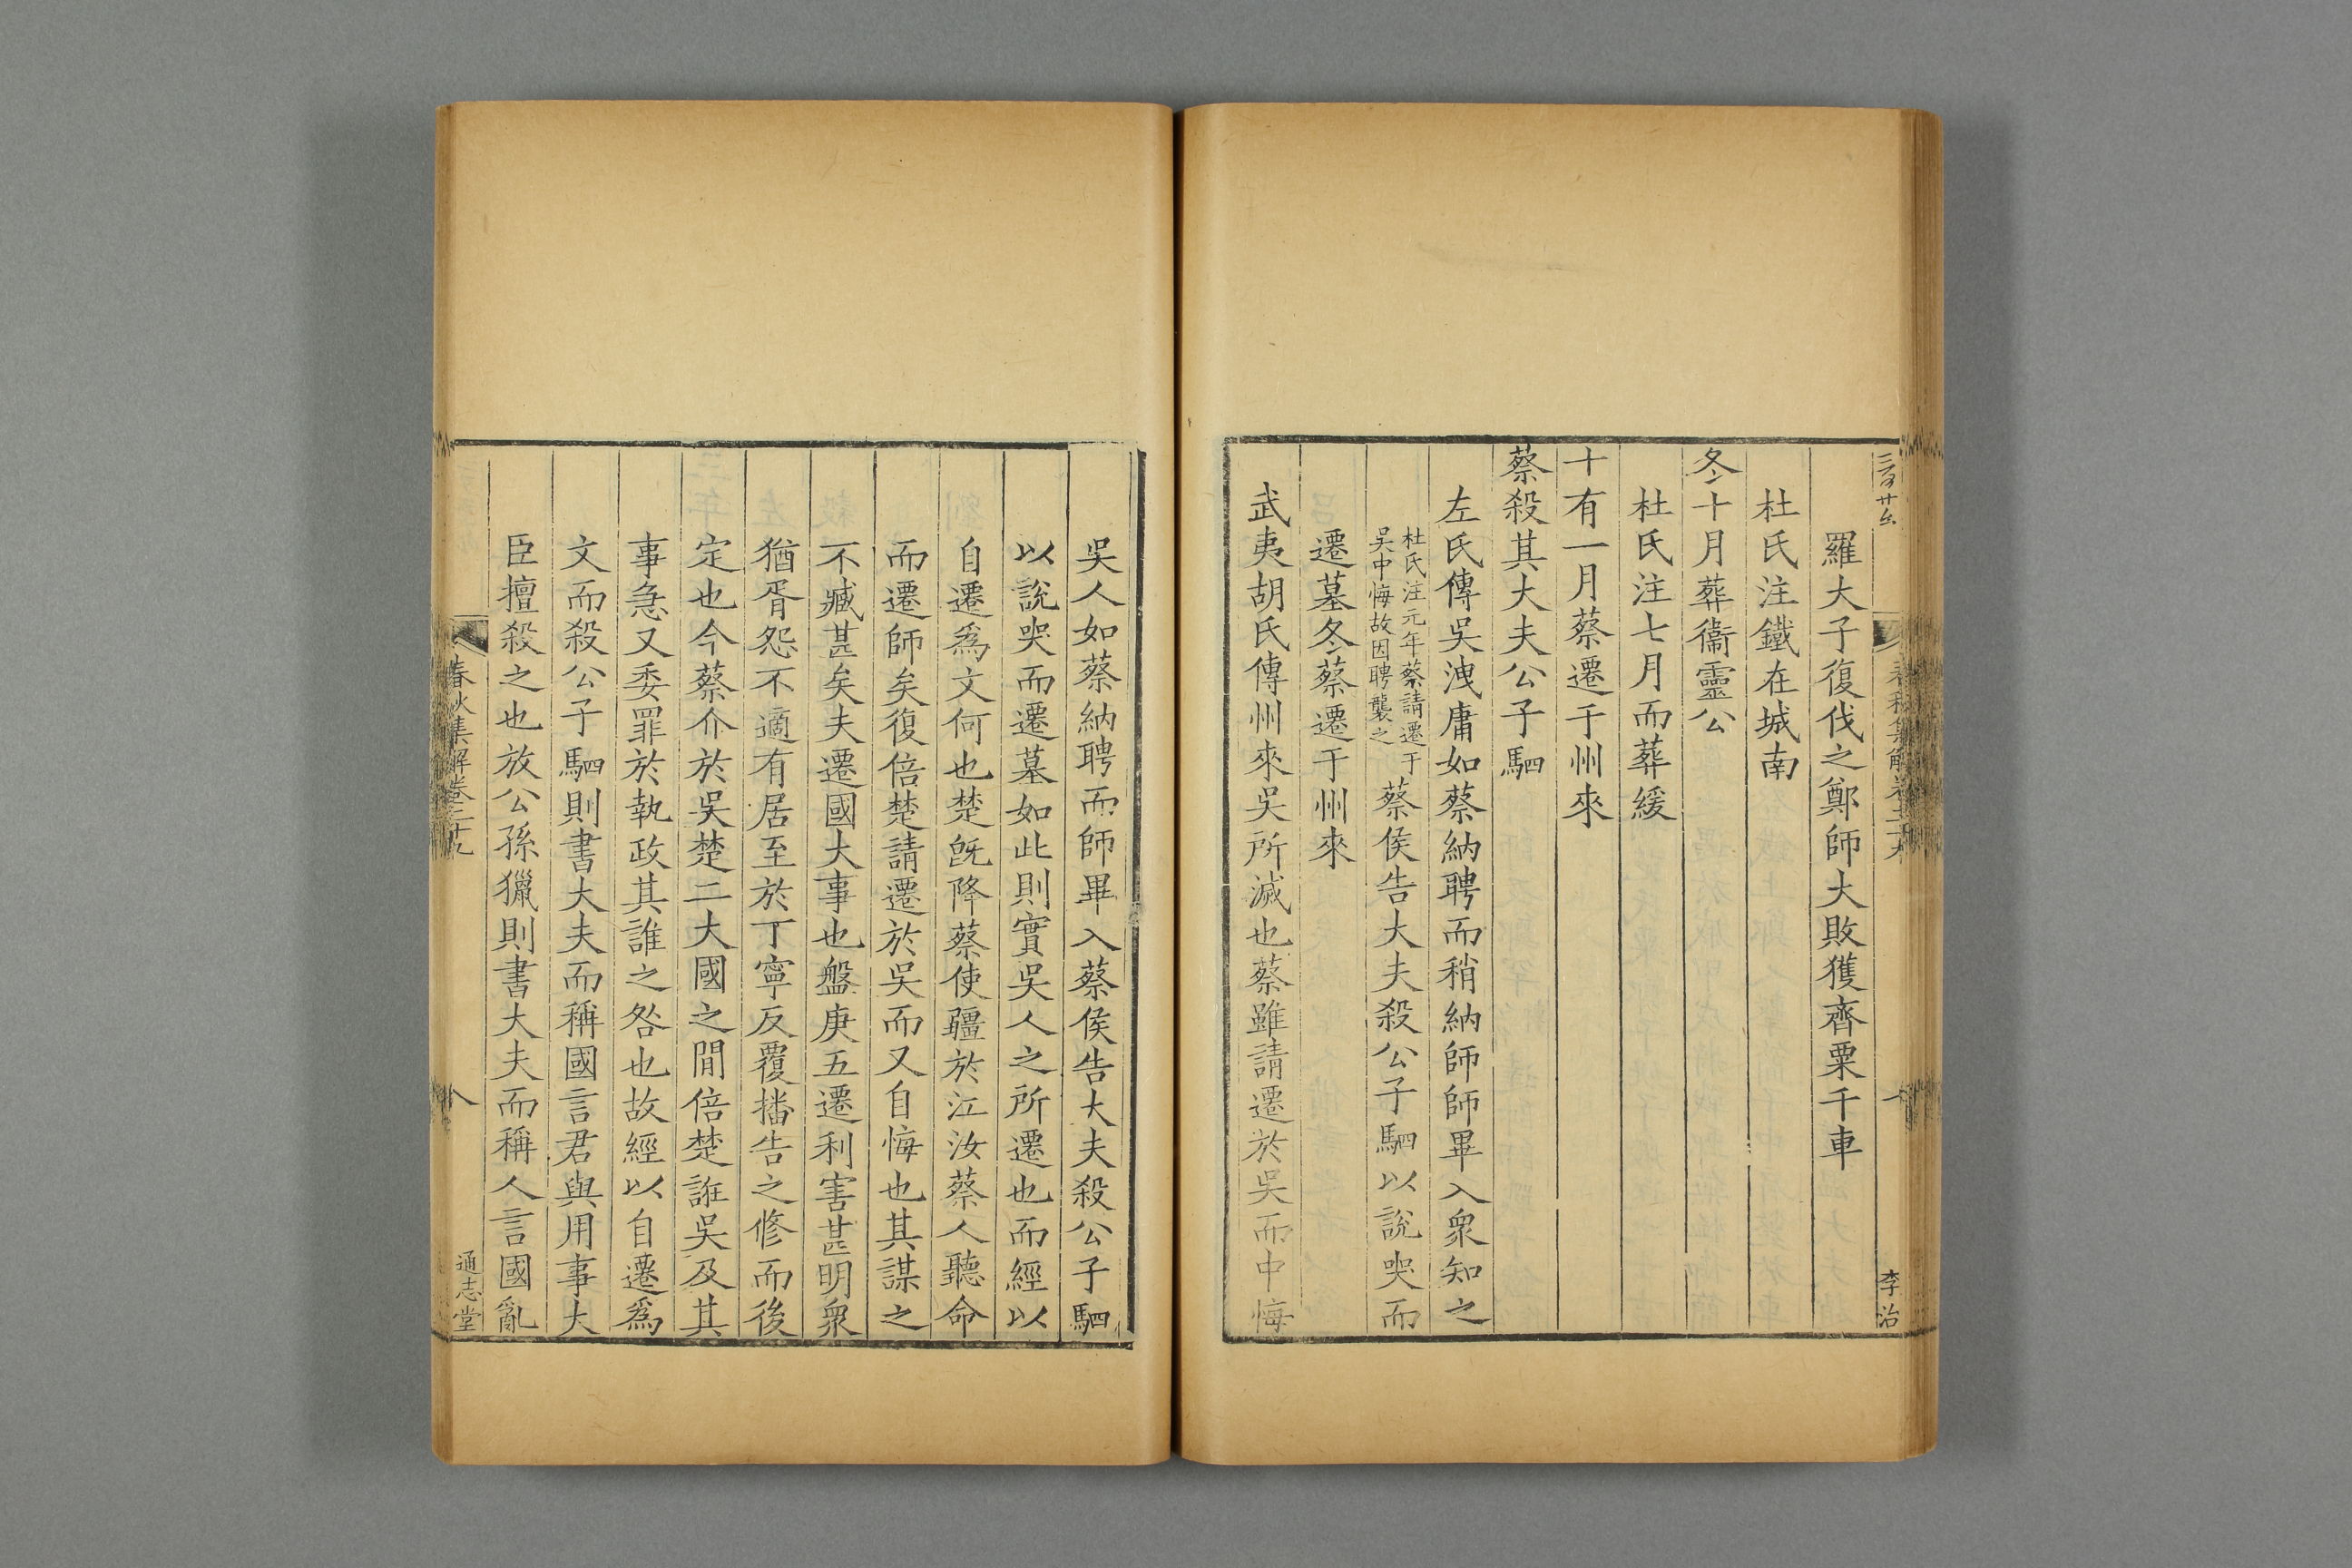 羅大子復伐之鄭師大敗獲齊粟千車
杜氏注鐵在城南
冬十月葬衞靈公
杜氏注七月而葬緩
十有一月蔡遷于州來
蔡殺其大夫公子駟
左氏傳吳洩庸如蔡納聘而稍納師師畢入衆知之
杜氏注元年蔡請遷于
吳中悔故因聘襲之
蔡侯告大夫殺公子駟以說哭而
遷墓冬蔡遷于州來
武夷胡氏傳州來吳所滅也蔡雖請遷於吳而中悔
李治
吳人如蔡納聘而師畢入蔡侯告大夫殺公子駟
以說哭而遷墓如此則實吳人之所遷也而經以
自遷爲文何也楚旣降蔡使疆於江汝蔡人聽命
而遷師矣復倍楚請遷於吳而又自悔也其謀之
不臧甚矣夫遷國大事也盤庚五遷利害甚明衆
猶胥怨不適有居至於丁寧反覆播告之修而後
定也今蔡介於吳楚二大國之間倍楚誑吳及其
事急又委罪於執政其誰之咎也故經以自遷爲
文而殺公子駟則書大夫而稱國言君與用事大
臣擅殺之也放公孫獵則書大夫而稱人言國亂
春秋集解卷二十九
八
通志堂